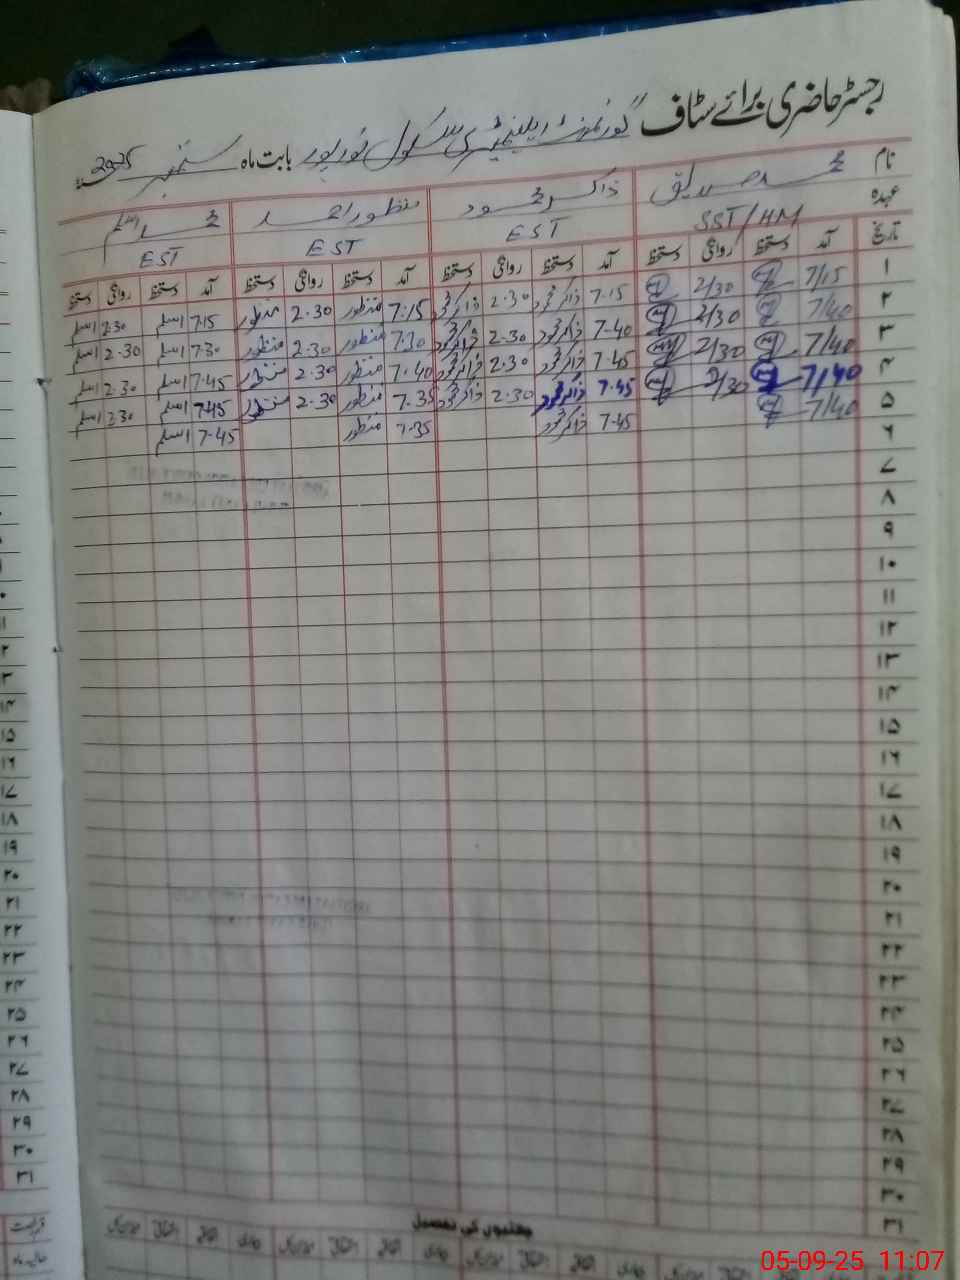 رجسٹر حاضری برائے سٹاف گورنمنٹ ایلیمنٹری سکول نورپور بابت ماہ ستمبر 2025ء
نام محمد صدیق ذاکر محمود منظور احمد محمد اسلم
عہدہ SST/HM EST EST EST
تاریخ آمد دستخط روانگی دستخط آمد دستخط روانگی دستخط آمد دستخط روانگی دستخط آمد دستخط روانگی دستخط
۱ 7/15 2/30 7-15 ذاکر محمود 2-30 ذاکر محمود 7:15 منظور 2-30 منظور 7-15 اسلم 2-30 اسلم
۲ 7/40 2/30 7-40 ذاکر محمود 2-30 ذاکر محمود 7:30 منظور 2-30 منظور 7-30 اسلم 2-30 اسلم
۳ 7/40 2/30 7-45 ذاکر محمود 2-30 ذاکر محمود 7-40 منظور 2-30 منظور 7-45 اسلم 2-30 اسلم
۴ 7/40 2/30 7-45 ذاکر محمود 2-30 ذاکر محمود 7-35 منظور 2-30 منظور 7-45 اسلم 2-30 اسلم
۵ 7/40 7-45 ذاکر محمود 7-35 منظور 7-45 اسلم
۶
۷
۸
۹
۱۰
۱۱
۱۲
۱۳
۱۴
۱۵
۱۶
۱۷
۱۸
۱۹
۲۰
۲۱
۲۲
۲۳
۲۴
۲۵
۲۶
۲۷
۲۸
۲۹
۳۰
۳۱
چھٹیوں کی تفصیل
05-09-25 11:07